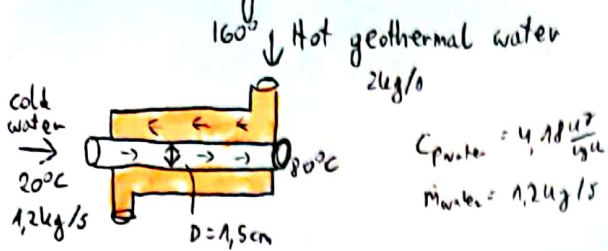 160° Hot geothermal water
2kg/s
cold
water
20°C
1,2kg/s
80°C
D=1,5cm
Cpwater = 4,18 kJ/kgK
ṁwater = 1,2kg/s